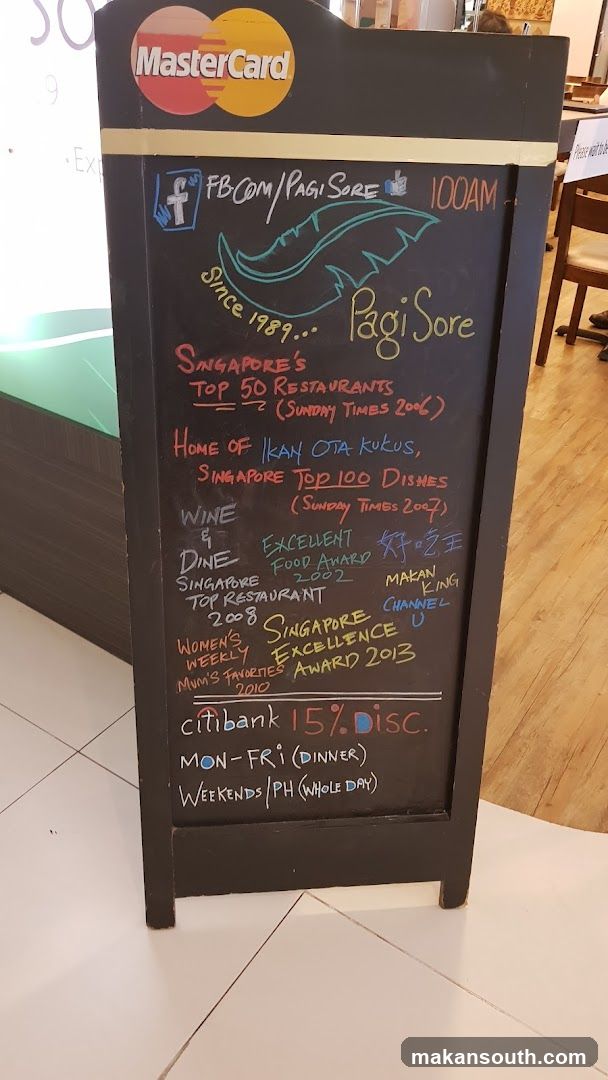 MasterCard
FB.COM/PAGISORE
100AM
Since 1989...
Pagi Sore
SINGAPORE'S
TOP 50 RESTAURANTS
(SUNDAY TIMES 2006)
HOME OF IKAN OTA KUKUS,
SINGAPORE TOP 100 DISHES
(SUNDAY TIMES 2007)
WINE
&
DINE
SINGAPORE
TOP RESTAURANT
2008
EXCELLENT
FOOD AWARD
2002
好吃王
MAKAN
KING
CHANNEL
U
WOMEN'S
WEEKLY
MUM'S FAVORITES
2010
SINGAPORE
EXCELLENCE
AWARD 2013
citibank 15% DISC.
MON-FRI (DINNER)
WEEKENDS/PH (WHOLE DAY)
Please wait to be
makansouth.com